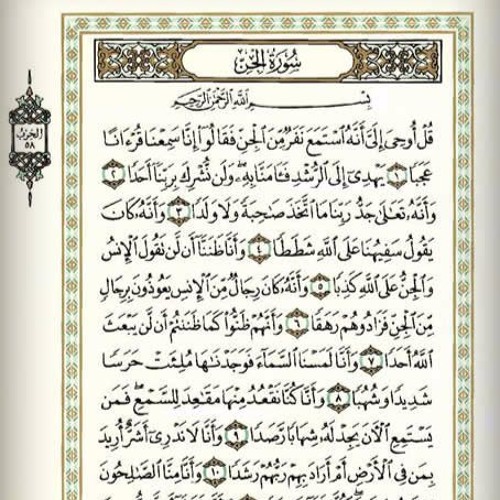 سُورَةُ الجِنِّ
بِسْمِ اللَّهِ الرَّحْمَٰنِ الرَّحِيمِ
قُلْ أُوحِىَ إِلَىَّ أَنَّهُ ٱسْتَمَعَ نَفَرٌ مِّنَ ٱلْجِنِّ فَقَالُوٓا۟ إِنَّا سَمِعْنَا قُرْءَانًا
عَجَبًا ١ يَهْدِىٓ إِلَى ٱلرُّشْدِ فَـَٔامَنَّا بِهِۦ وَلَن نُّشْرِكَ بِرَبِّنَآ أَحَدًا ٢
وَأَنَّهُۥ تَعَـٰلَىٰ جَدُّ رَبِّنَا مَا ٱتَّخَذَ صَـٰحِبَةً وَلَا وَلَدًا ٣ وَأَنَّهُۥ كَانَ
يَقُولُ سَفِيهُنَا عَلَى ٱللَّهِ شَطَطًا ٤ وَأَنَّا ظَنَنَّآ أَن لَّن تَقُولَ ٱلْإِنسُ
وَٱلْجِنُّ عَلَى ٱللَّهِ كَذِبًا ٥ وَأَنَّهُۥ كَانَ رِجَالٌ مِّنَ ٱلْإِنسِ يَعُوذُونَ بِرِجَالٍ
مِّنَ ٱلْجِنِّ فَزَادُوهُمْ رَهَقًا ٦ وَأَنَّهُمْ ظَنُّوا۟ كَمَا ظَنَنتُمْ أَن لَّن يَبْعَثَ
ٱللَّهُ أَحَدًا ٧ وَأَنَّا لَمَسْنَا ٱلسَّمَآءَ فَوَجَدْنَـٰهَا مُلِئَتْ حَرَسًا
شَدِيدًا وَشُهُبًا ٨ وَأَنَّا كُنَّا نَقْعُدُ مِنْهَا مَقَـٰعِدَ لِلسَّمْعِ فَمَن
يَسْتَمِعِ ٱلْـَٔانَ يَجِدْ لَهُۥ شِهَابًا رَّصَدًا ٩ وَأَنَّا لَا نَدْرِىٓ أَشَرٌّ أُرِيدَ
بِمَن فِى ٱلْأَرْضِ أَمْ أَرَادَ بِهِمْ رَبُّهُمْ رَشَدًا ١٠ وَأَنَّا مِنَّا ٱلصَّـٰلِحُونَ
الحزب
٥٨